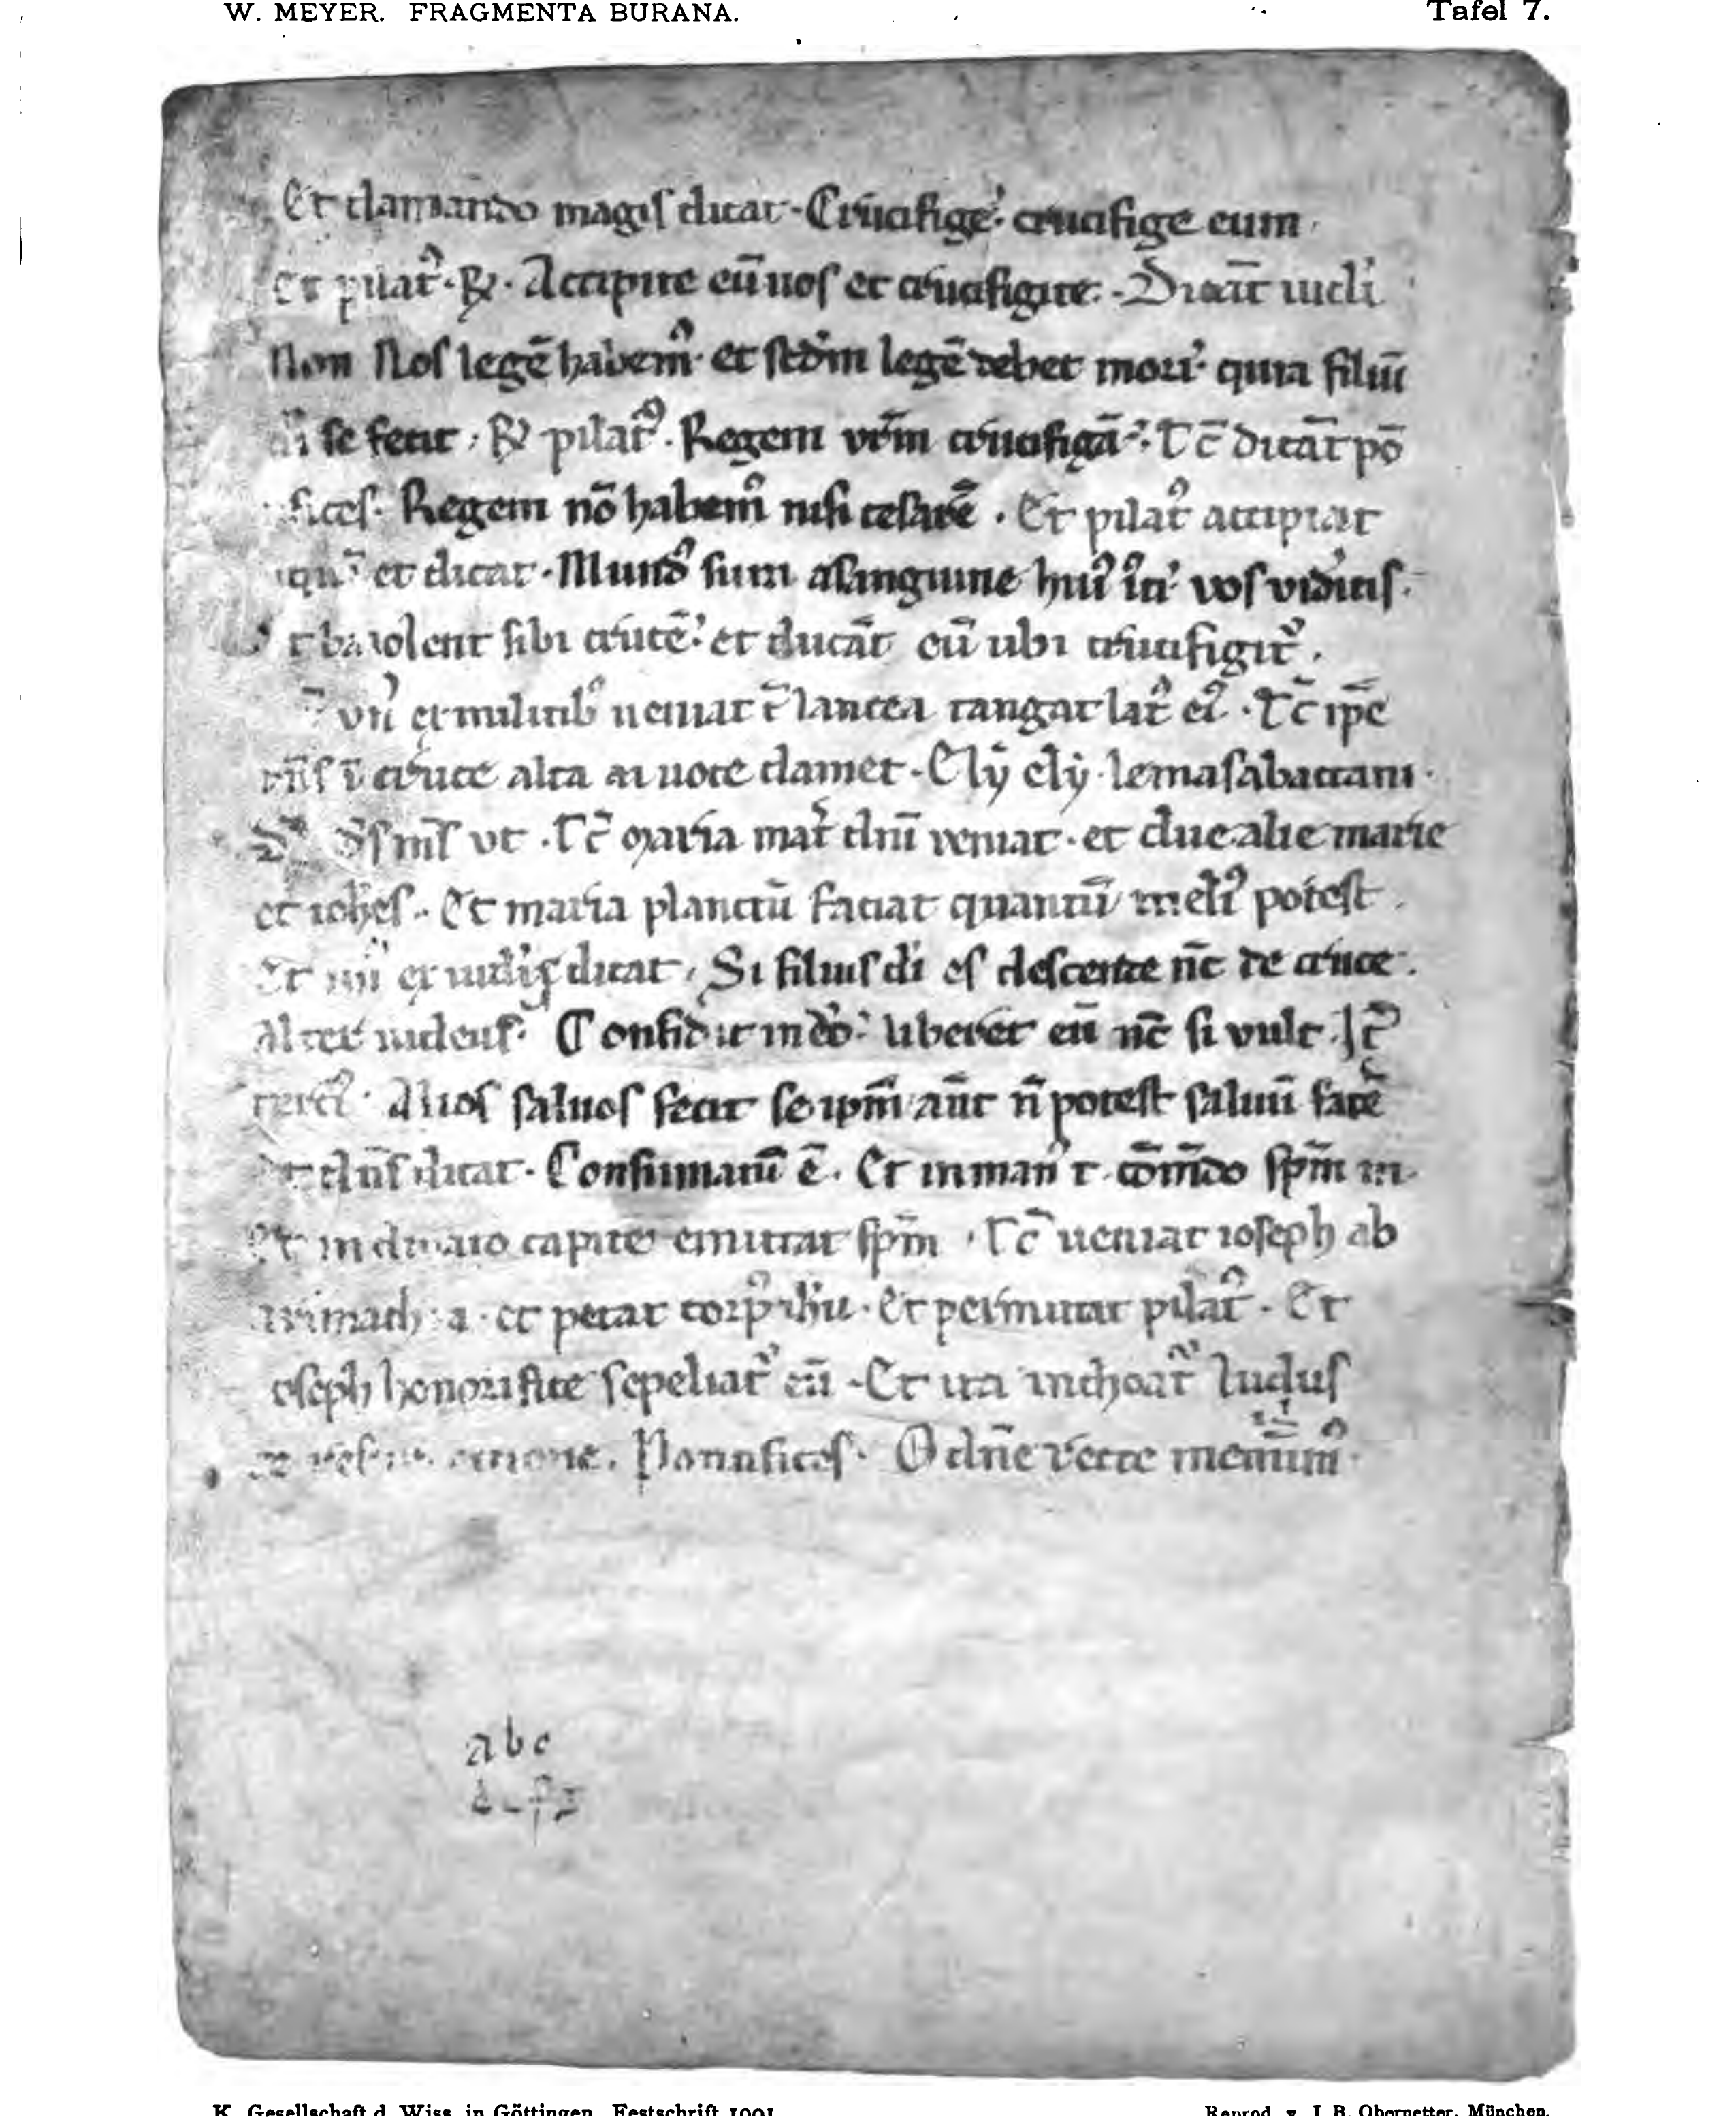 W. MEYER. FRAGMENTA BURANA. Tafel 7.
Et clamando magis dicat · Crucifige · crucifige eum ·
Et pilatꝰ · ꝶ · Accipite eū uos et crucifigite · Dicāt iudi
Non Nos legē habemꝰ · et scdm legē debet mori · quia filiū
di se fecit · ꝶ pilatꝰ · Regem vr̄m crucifigā · Tc̄ dicāt pō
fices · Regem nō habemꝰ nisi cesarē · Et pilatꝰ accipiat
et dicat · Mundꝰ sum a sanguine huiꝰ iti vos videitis ·
baiolent sibi crucē · et ducāt eū ubi crucifigitᷣ ·
vnꝰ ex militibꝰ ueniat c̄ lancea tangat latꝰ eiꝰ · Tc̄ ip̄e
dn̄s ī cruce alta uoce clamet · Ely ely · lemasabactani ·
vt · Tc̄ maria mat̾ dn̄i veniat · et due alie marie
et ioh̄es · Et maria planctū faciat quantū meliꝰ potest ·
Et vnꝰ ex iudeis dicat · Si filius di es descende nc̄ de cruce ·
Alter iudeus · Confidit in deo · liberet eū nc̄ si vult · It̄
terciꝰ · Alios saluos fecit se ip̄m aūt n̄ potest saluū facē
Et dn̄s dicat · Consumatū ē · Et in manꝰ t · cōmdo sp̄m m ·
Et inclinato capite emittat sp̄m · Tc̄ ueniat ioseph ab
arimathia · et petat corpꝰ ih̄u · Et permittat pilatꝰ · Et
ioseph honorifice sepeliat eū · Et ita inchoatᷣ ludus
de resurrectione · Pontifices · O dn̄e recte meminimꝰ ·
a b c
K. Gesellschaft d. Wiss. in Göttingen. Festschrift 1901 Reprod. v. J. B. Obernetter, München.